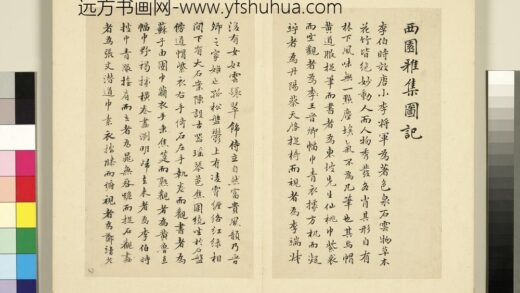 远方书画网-www.yfshuhua.com
西園雅集圖記
李伯時效唐小李將軍為著色泉石雲物草木
花竹皆絕妙動人而人物秀發各肖其形自有
林下風味無一點塵埃氣不為凡筆也其烏帽
黃道服捉筆而書者為東坡先生仙桃巾紫裘
而坐觀者為王晉卿幅巾青衣據方机而凝
竚者為丹陽蔡天啓捉椅而視者為李端叔
後有女奴雲鬟翠飾侍立自然富貴風韻乃晉
卿之家姬也孤松盤鬱上有凌霄纏絡紅綠相
間下有大石案陳設古器瑤琴芭蕉圍繞坐於石盤
傍道帽紫衣右手倚石左手執卷而觀書者為
蘇子由團巾繭衣手秉蕉箑而熟觀者為黃魯直
幅巾野褐據橫卷畫淵明歸去來者為李伯時
披巾青服撫肩而立者為晁無咎跪而捉石觀畫
者為張文潛道巾素衣按膝而俯視者為鄭靖老